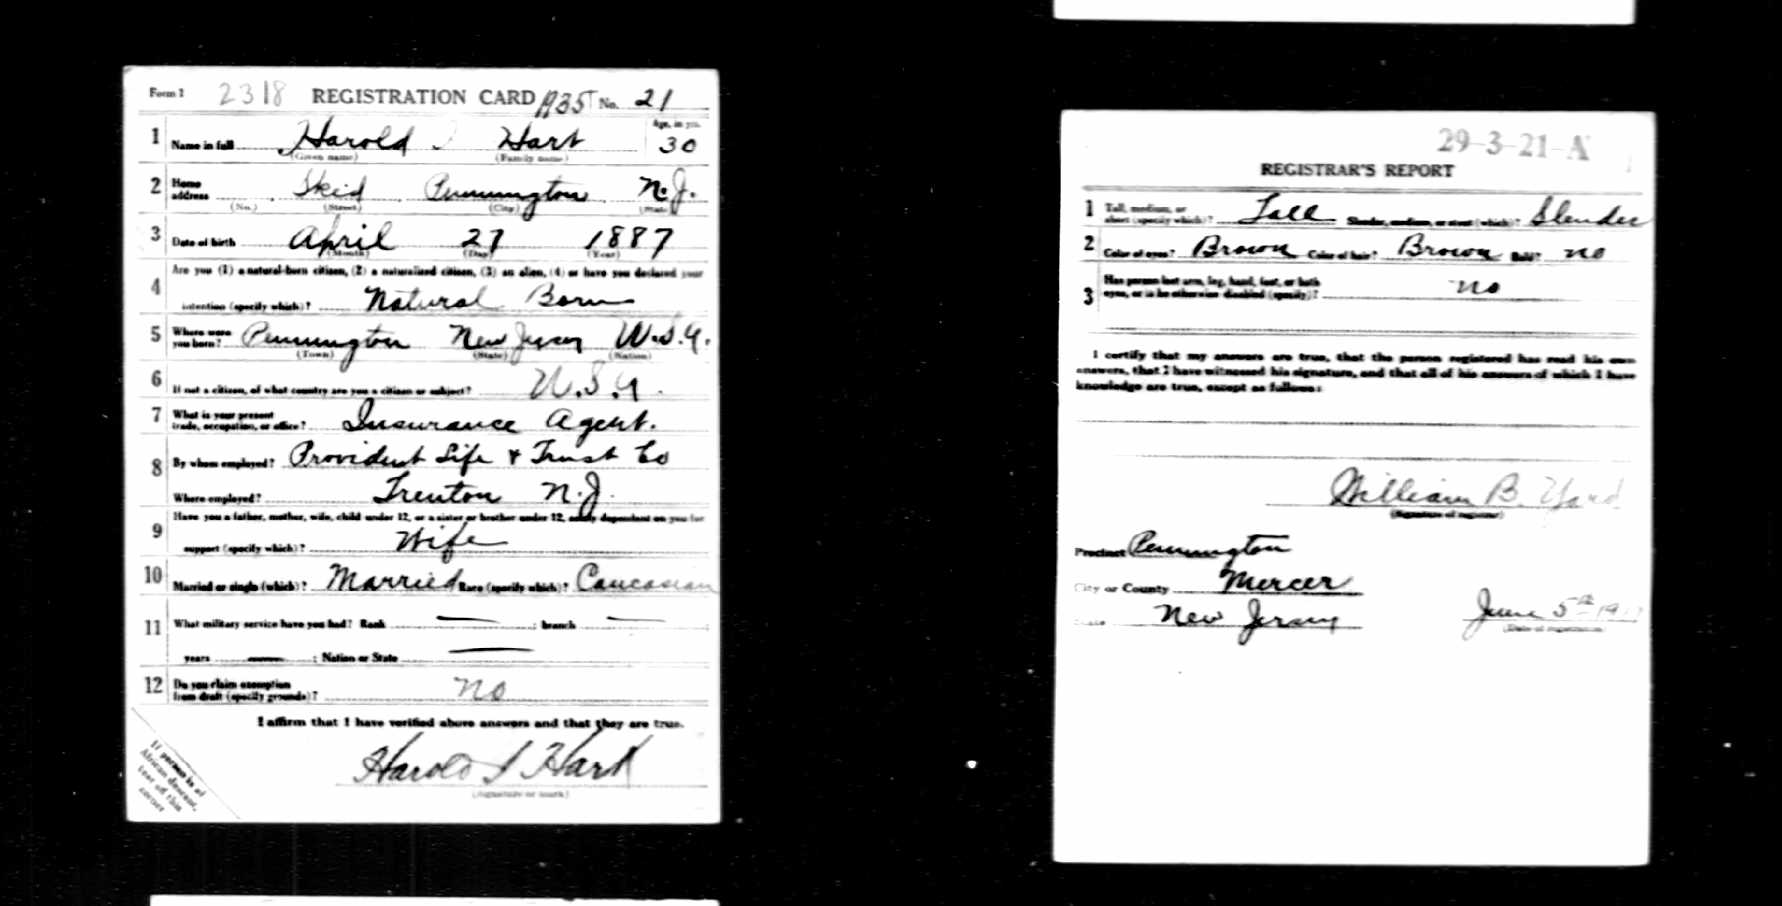 Form 1 2318 REGISTRATION CARD A35 No. 21
Age, in yrs.
1 Name in full Harold Hart 30
(Given name) (Family name)
2 Home address Skid Pennington N.J.
(No.) (Street) (City) (State)
3 Date of birth April 27 1887
(Month) (Day) (Year)
Are you (1) a natural-born citizen, (2) a naturalized citizen, (3) an alien, (4) or have you declared your
4 intention (specify which)? Natural Born
5 Where were you born? Pennington New Jersey U.S.A.
(Town) (State) (Nation)
6 If not a citizen, of what country are you a citizen or subject? U.S.A.
7 What is your present trade, occupation, or office? Insurance Agent.
8 By whom employed? Provident Life & Trust Co
Where employed? Trenton N.J.
Have you a father, mother, wife, child under 12, or a sister or brother under 12, solely dependent on you for
9 support (specify which)? Wife
10 Married or single (which)? Married Race (specify which)? Caucasian
11 What military service have you had? Rank — ; branch — ;
years — ; Nation or State —
12 Do you claim exemption from draft (specify grounds)? No
I affirm that I have verified above answers and that they are true.
Harold S Hart
(Signature or mark)
If person is of
African descent,
tear off this
corner
29-3-21-A
REGISTRAR'S REPORT
1 Tall, medium, or short (specify which)? Tall Slender, medium, or stout (which)? Slender
2 Color of eyes? Brown Color of hair? Brown Bald? no
3 Has person lost arm, leg, hand, foot, or both eyes, or is he otherwise disabled (specify)? no
I certify that my answers are true, that the person registered has read his own
answers, that I have witnessed his signature, and that all of his answers of which I have
knowledge are true, except as follows:
William B. Yard
(Signature of registrar)
Precinct Pennington
City or County Mercer
State New Jersey June 5th 191
(Date of registration)